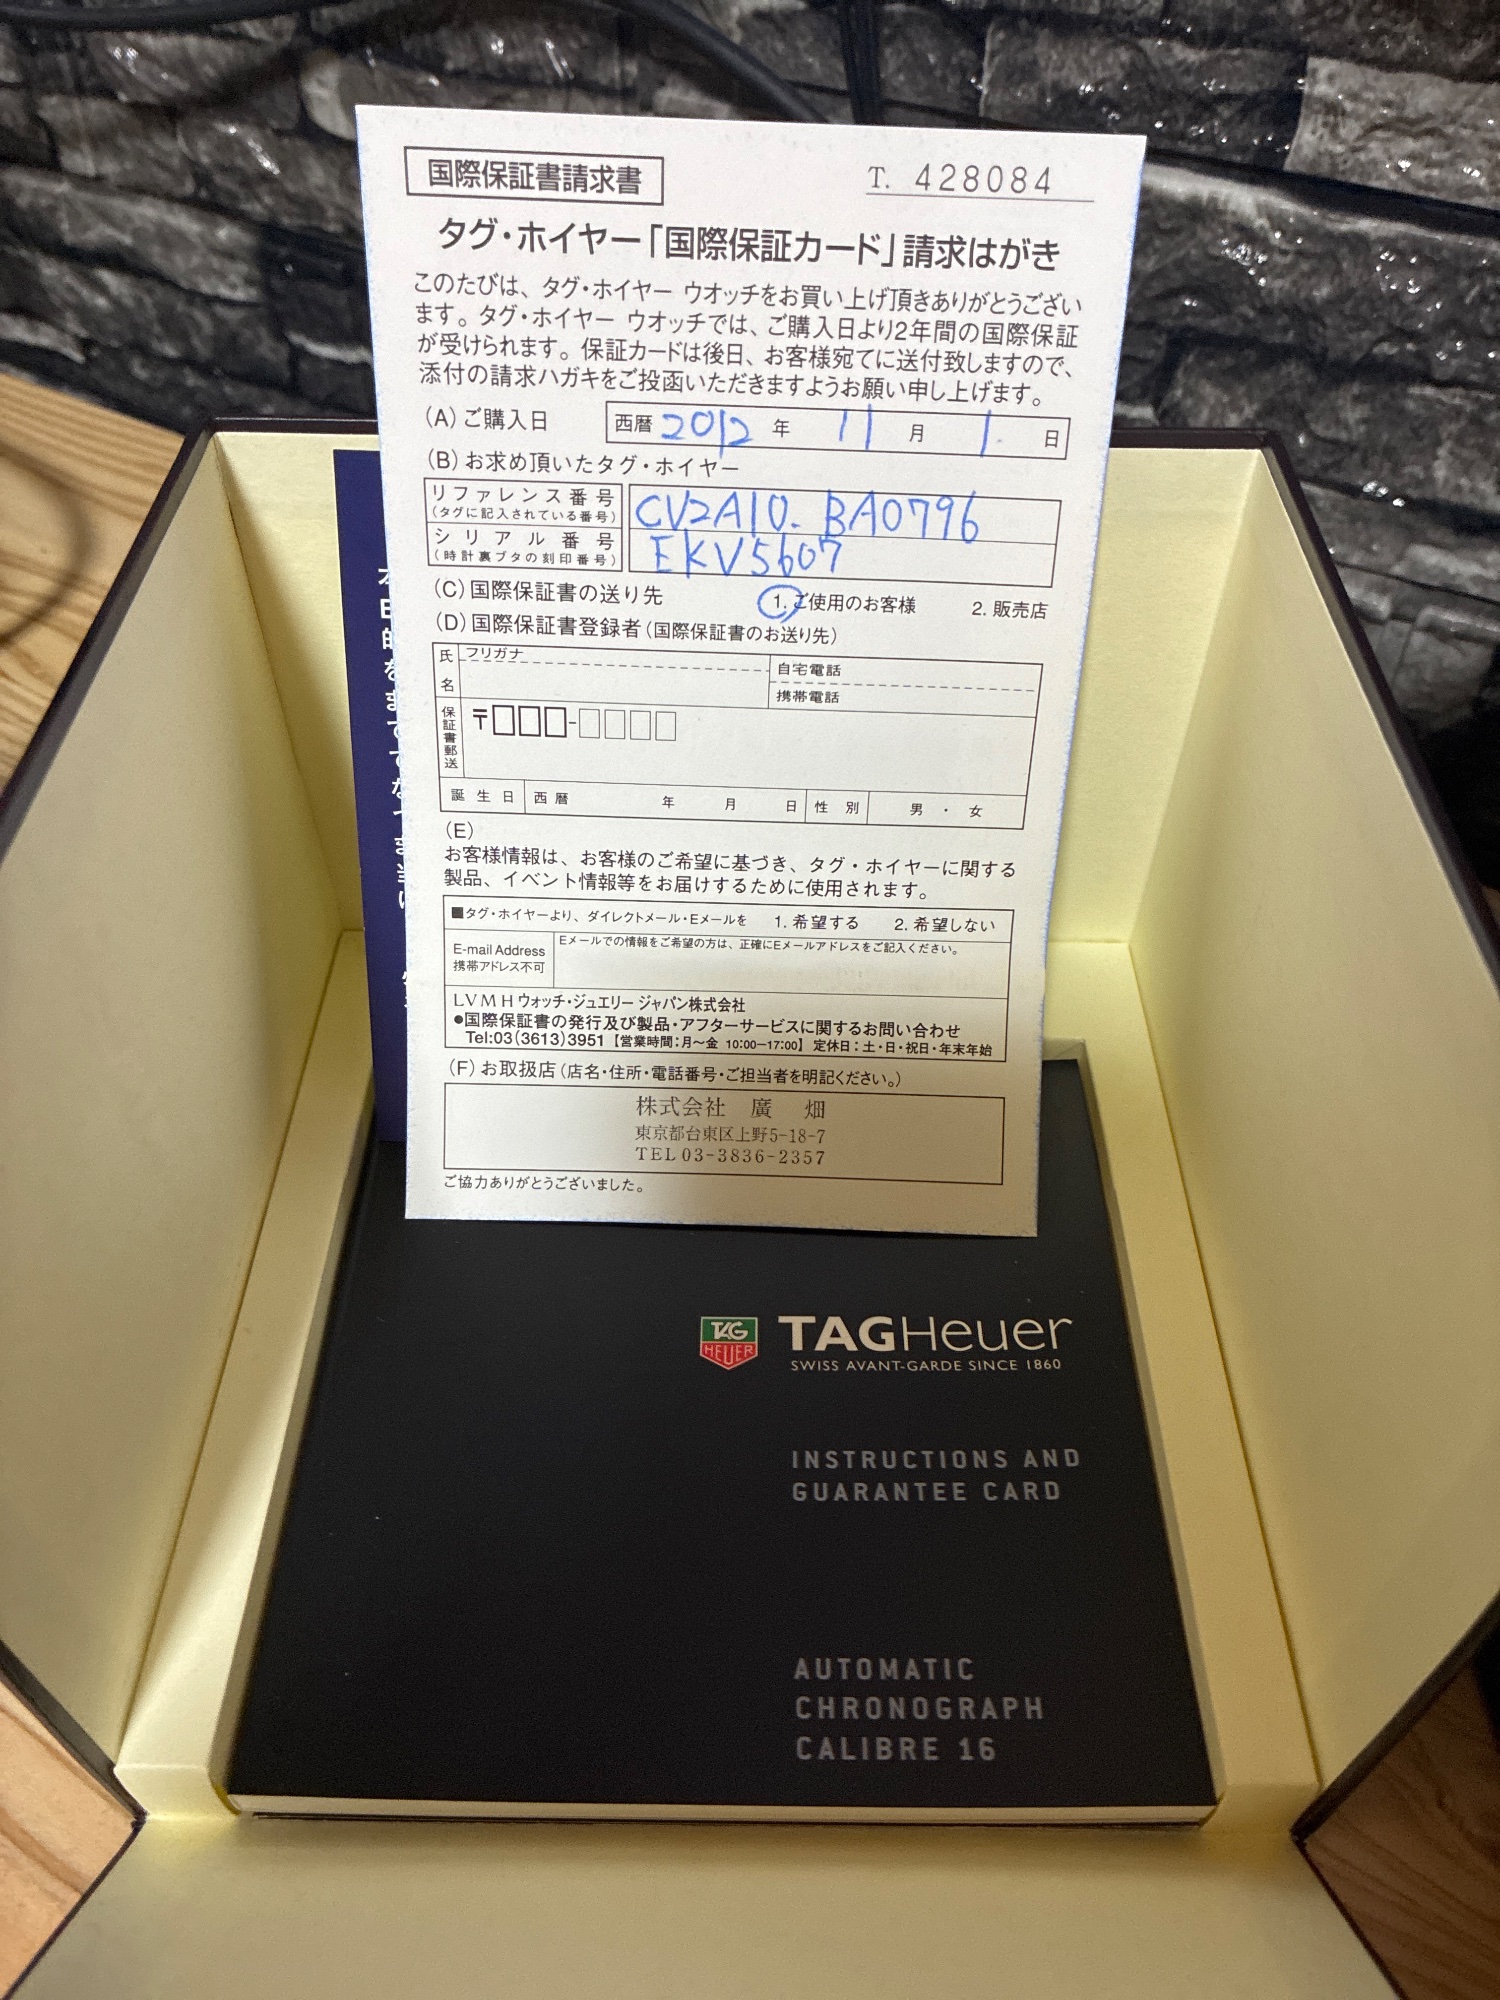 国際保証書請求書
T. 428084
タグ・ホイヤー「国際保証カード」請求はがき
このたびは、タグ・ホイヤー ウオッチをお買い上げ頂きありがとうござい
ます。タグ・ホイヤー ウオッチでは、ご購入日より2年間の国際保証
が受けられます。保証カードは後日、お客様宛てに送付致しますので、
添付の請求ハガキをご投函いただきますようお願い申し上げます。
(A)ご購入日 西暦 2012 年 11 月 1. 日
(B)お求め頂いたタグ・ホイヤー
リファレンス番号 CV2A10. BA0796
(タグに記入されている番号)
シリアル番号 EKV5607
(時計裏ブタの刻印番号)
(C)国際保証書の送り先 1. ご使用のお客様 2. 販売店
(D)国際保証書登録者(国際保証書のお送り先)
氏名 フリガナ 自宅電話
携帯電話
保証書郵送 〒
誕生日 西暦 年 月 日 性別 男・女
(E)
お客様情報は、お客様のご希望に基づき、タグ・ホイヤーに関する
製品、イベント情報等をお届けするために使用されます。
■タグ・ホイヤーより、ダイレクトメール・Eメールを 1. 希望する 2. 希望しない
E-mail Address Eメールでの情報をご希望の方は、正確にEメールアドレスをご記入ください。
携帯アドレス不可
LVMHウォッチ・ジュエリー ジャパン株式会社
●国際保証書の発行及び製品・アフターサービスに関するお問い合わせ
Tel:03(3613)3951【営業時間:月〜金 10:00−17:00】定休日:土・日・祝日・年末年始
(F)お取扱店(店名・住所・電話番号・ご担当者を明記ください。)
株式会社 廣 畑
東京都台東区上野5-18-7
TEL 03-3836-2357
ご協力ありがとうございました。
TAG
HEUER
TAGHeuer
SWISS AVANT-GARDE SINCE 1860
INSTRUCTIONS AND
GUARANTEE CARD
AUTOMATIC
CHRONOGRAPH
CALIBRE 16